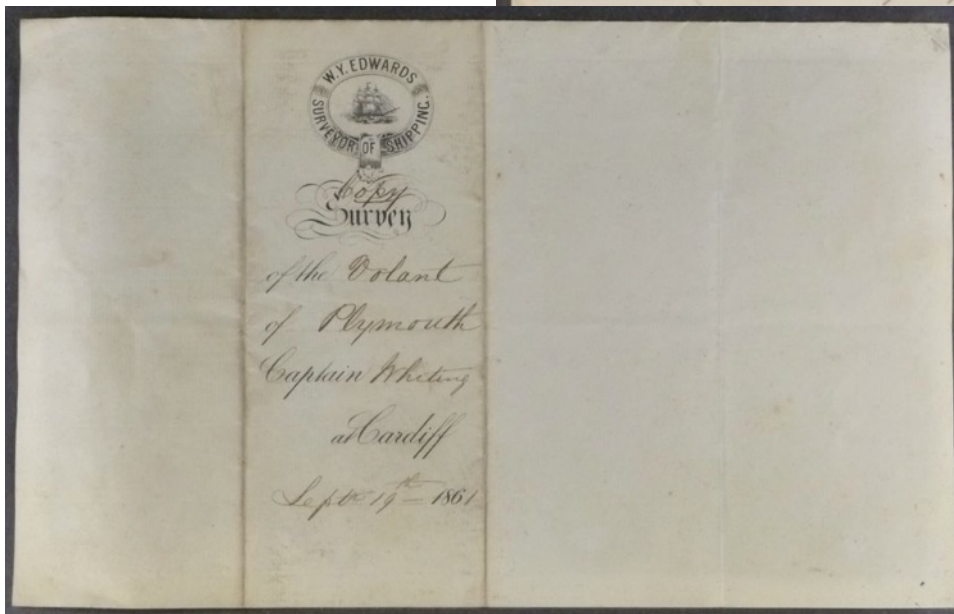 W.Y. EDWARDS
SURVEYOR OF SHIPPING.
Copy
Survey
of the Volant
of Plymouth
Captain Whiting
at Cardiff
Septr 19th 1861